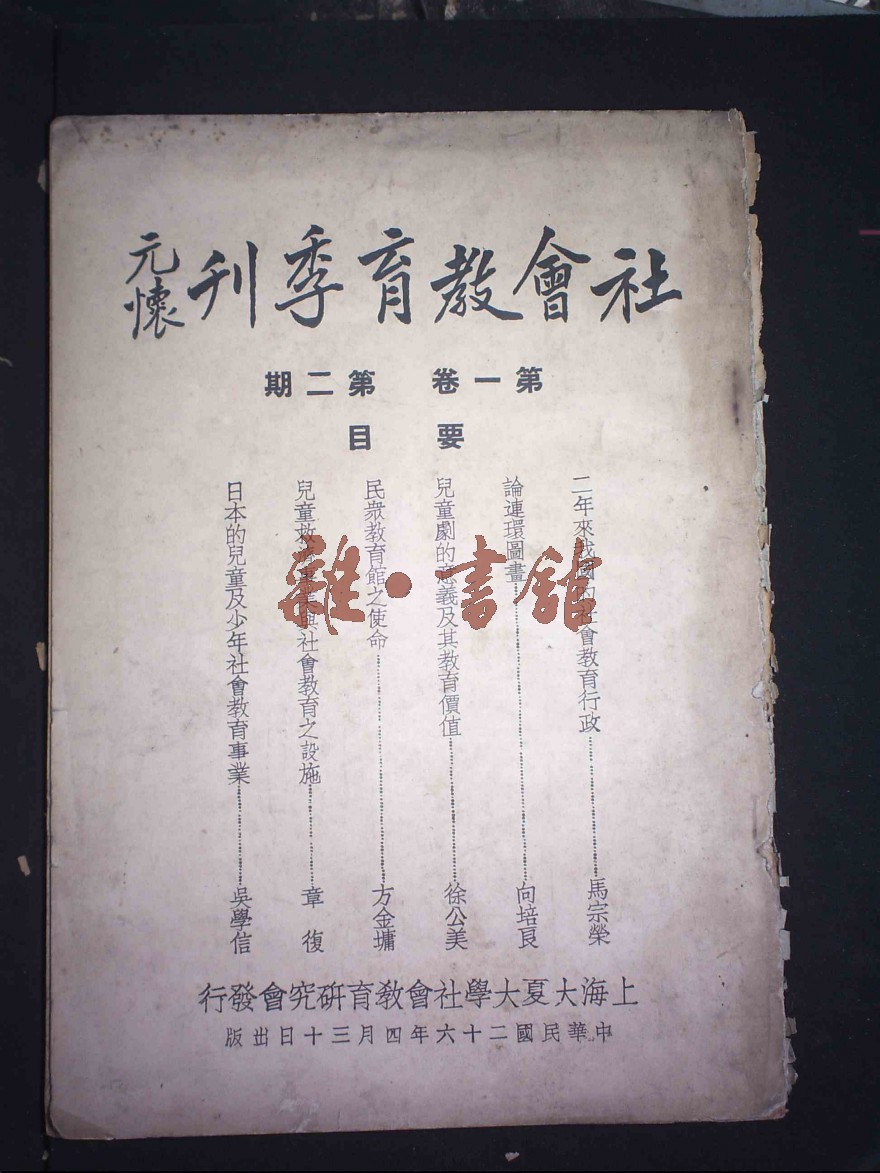 社會教育季刊
元懷
第一卷 第二期
要目
二年來我國的社會教育行政 馬宗榮
論連環圖畫 向培良
兒童劇的意義及其教育價值 徐公美
民衆教育館之使命 方金墉
兒童救濟事業與社會教育之設施 章復
日本的兒童及少年社會教育事業 吳學信
上海大夏大學社會教育研究會發行
中華民國二十六年四月三十日出版
雜·書館